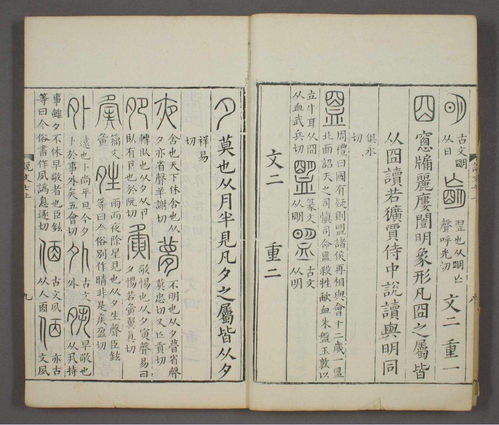 明古文朙从日 朚翌也从明亡聲呼光切 文二 重一
囧窻牖麗廔闓明象形凡囧之屬皆
从囧讀若獷賈侍中說讀與明同
俱永切
盟周禮曰國有疑則盟諸侯再相與會十二歲一盟北面詔天之司慎司命盟殺牲歃血朱盤玉敦以
立牛耳从囧从血武兵切 盟篆文从朙 盟古文从明
文二 重二
夕莫也从月半見凡夕之屬皆从夕
祥易切
夜舍也天下休舍也从夕亦省聲羊謝切 夢不明也从夕瞢省聲莫忠切又亡貢切
夗轉臥也从夕从卪臥有卪也於阮切 夤敬惕也从夕寅聲易曰夕惕若夤翼真切
籒文夤 姓雨而夜除星見也从夕生聲臣鉉等曰今俗別作晴非是疾盈切
外遠也卜尚平旦今夕卜於事外矣五會切 古文外 夙早敬也从丮持
事雖夕不休早敬者也臣鉉等曰今俗書作夙譌息逐切 古文夙从人㐁 亦古文夙
說文七上 九